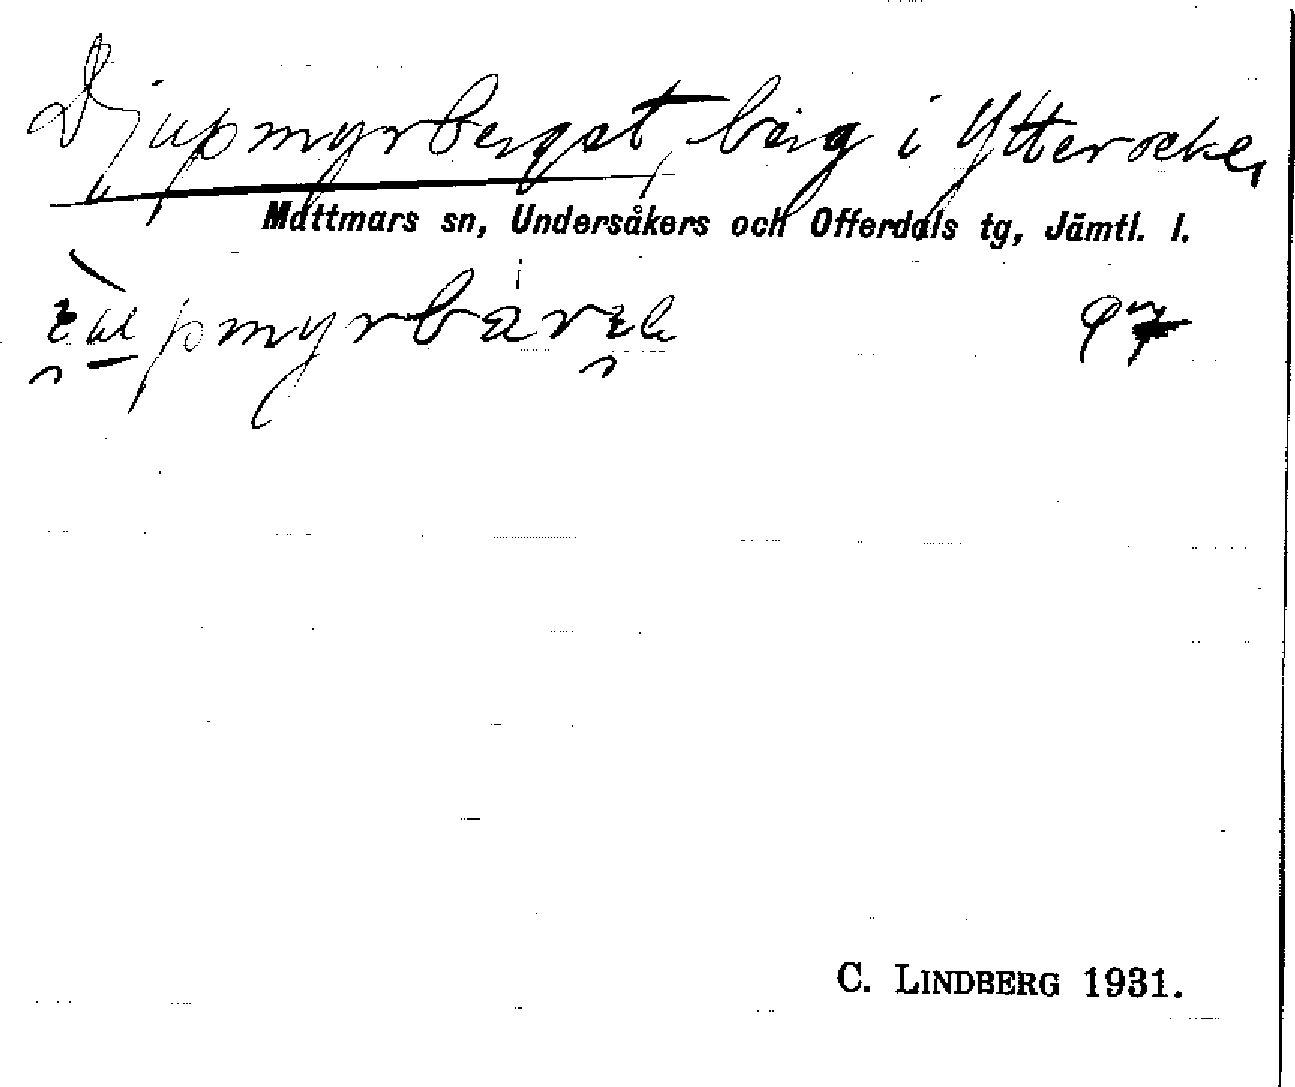 Djupmyrberget, berg i Ytterocke,
Mattmars sn, Undersåkers och Offerdals tg, Jämtl. l.
97
C. LINDBERG 1931.